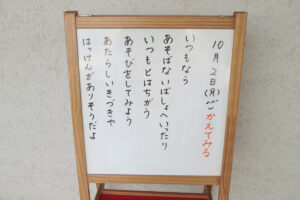 10月2日(月) かえてみる
いつもなら
あそばないばしょへいったり
いつもとはちがう
あそびをしてみよう
あたらしいきづきや
はっけんがありそうだよ